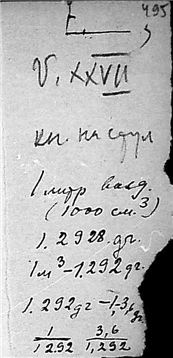 495
V. XXVII
кн. на стул
1 литр возд.
(1000 см.³)
1.2928 gr.
1 м³ - 1.292 gr.
1.292 gr - 1,3,6 gr
1/1292 3,6/1,292